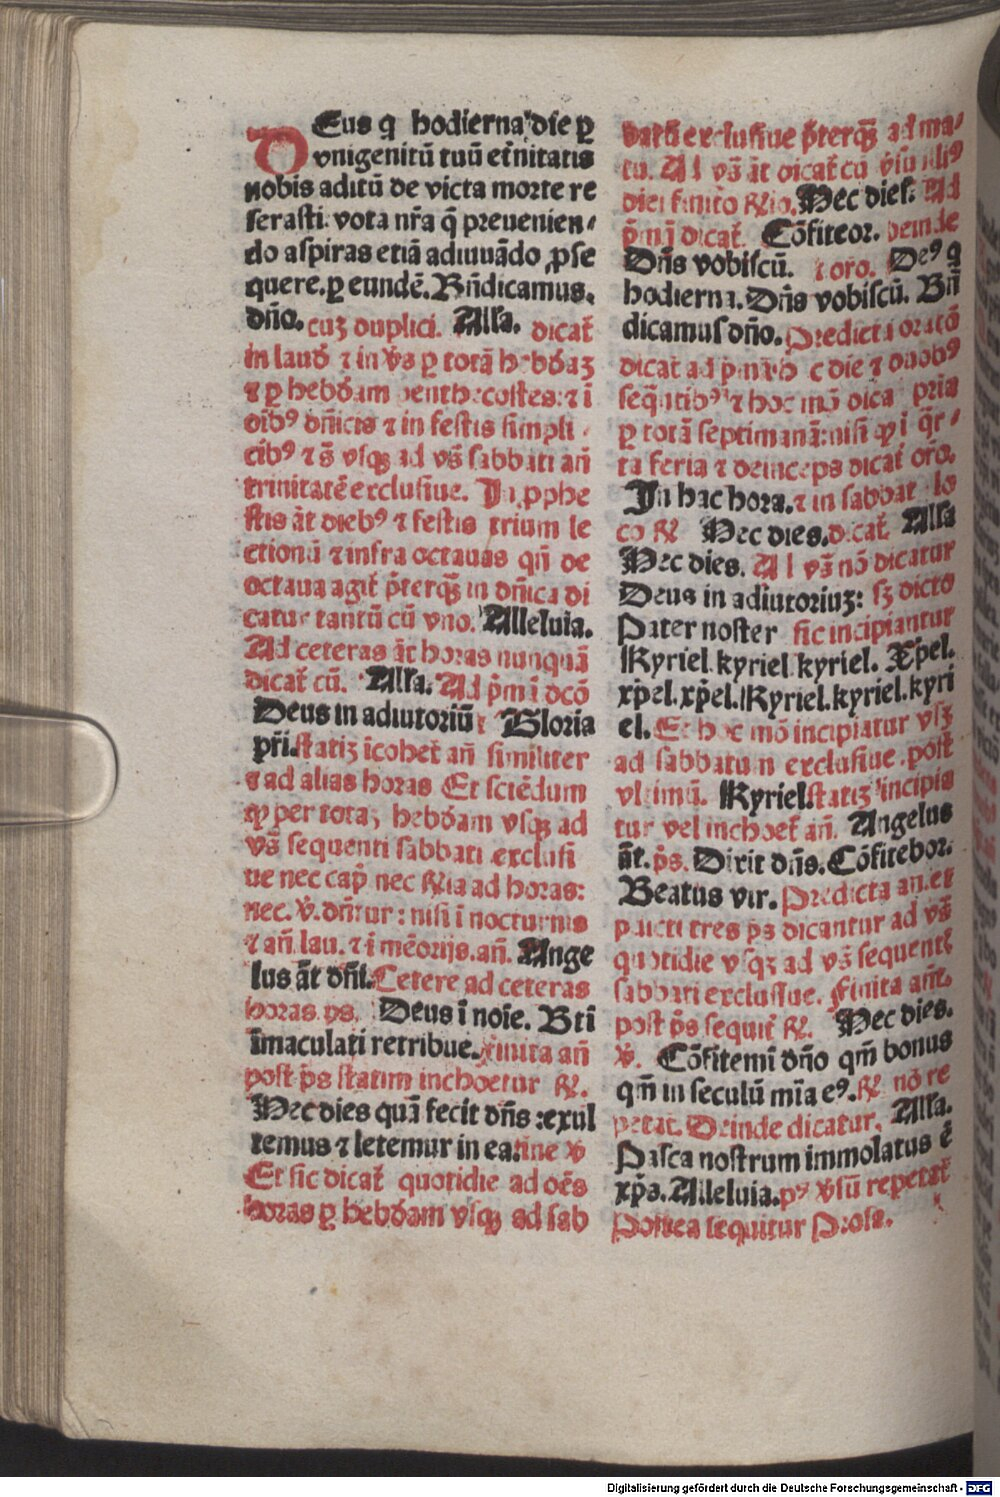 DEus q̄ hodierna die ꝑ
vnigenitū tuū et̄nitatis
nobis aditū de victa morte re
serasti. vota nr̄a q̄ preuenien⸗
do aspiras etiā adiuuādo ꝓse
quere. ꝑ eundē. Bn̄dicamus.
dn̄o. cuꝫ duplici. Alla. dicat̄
in laud̄ ⁊ in v̄s ꝑ totā hebd̄aꝫ
⁊ ꝑ hebd̄am penthecostes: ⁊ i
oib⁹ dn̄icis ⁊ in festis simpli
cib⁹ ⁊ s̄ vsqꝫ ad vs̄ sabbati an̄
trinitatē exclusiue. In ꝓphe
stis āt dieb⁹ ⁊ festis trium le
ctionū ⁊ infra octauas qn̄ de
octaua agit̄ p̄terqꝫ̄ in dn̄ica di
catur tantū cū vno. Alleluia.
Ad ceteras āt horas nunquā
dicat̄ cū. Alla. Ad p̄m ī dcō
Deus in adiutoriū ⁊ Gloria
pr̄i. statiꝫ īcohet̄ an̄ similiter
⁊ ad alias horas Et sciēdum
ꝙ per totaꝫ hebd̄am vsqꝫ ad
vs̄ sequenti sabbati exclusi
ue nec cap̄ nec ℟ia ad horas:
nec. v̄. dn̄tur: nisi ī nocturnis
⁊ an̄. lau. ⁊ ī mēorijs. an̄. Ange
lus āt dn̄i. Cetere ad ceteras
horas. ps. Deus ī noīe. Bti
īmaculati retribue. finita an̄
post p̄s statim inchoetur ℟.
Hec dies quā fecit dn̄s: exul
temus ⁊ letemur in ea. sine v̄
Et sic dicat̄ quotidie ad oēs
horas ꝑ hebd̄am vsqꝫ ad sab
batū exclusiue p̄terqꝫ̄ ad ma⸗
tu. Al vs̄ āt dicat̄ cū
diei finito ℟io. Hec dies. Ad
dicat̄. Cōfiteor. deinde
Dn̄s vobiscū. ⁊ oro. De⁹ q
hodierna. Dn̄s vobiscū. Bn̄
dicamus dn̄o. Predicta oratō
dicat̄ ad die ⁊ duob⁹
seq̄ntib⁹ ⁊ hoc mō dica pria
ꝑ totā septimanā: nisi ꝙ i q̄r⸗
ta feria ⁊ deinceps dicat̄ oro.
In hac hora. ⁊ in sabbat lo
co ℟ Hec dies. dicat̄ Alla
Hec dies. Al vs̄ nō dicatur
Deus in adiutoriuꝫ: sꝫ dicto
Pater noster sic incipiantur
Kyriel. kyriel kyriel. Xp̄el.
xp̄el. xp̄el. Kyriel. kyriel. kyri
el. Et hoc mō incipiatur vsqꝫ
ad sabbatum exclusiue. post
vltimū. Kyriel statiꝫ incipia
tur vel inchoet̄ an̄. Angelus
āt. p̄s. Dixit dn̄s. Cōfitebor.
Beatus vir. Predicta an̄. et
p̄dicti tres p̄s dicantur ad vs̄
quotidie vsqꝫ ad vs̄ sequentꝭ
sabbati exclusiue. Finita an̄.
post p̄s sequit̄ ℟. Hec dies.
v̄. Cōfitemī dn̄o qm̄ bonus
qn̄ in seculū mīa e⁹. ℟ nō re
petat̄. Deinde dicatur. Alla.
Pasca nostrum immolatus ē
xp̄s. Alleluia. p⁹ v̄sū repetat̄
postea sequitur Prosa.
Digitalisierung gefördert durch die Deutsche Forschungsgemeinschaft - DFG